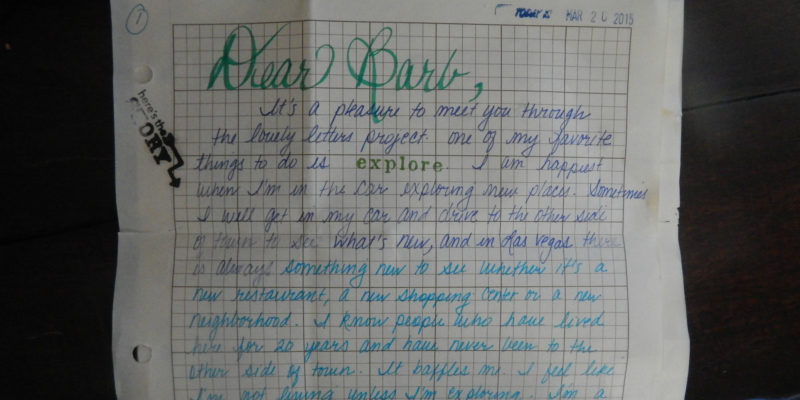 1
TODAY IS MAR 20 2015
Dear Barb,
here's the
STORY
It's a pleasure to meet you through
the lovely letters project. One of my favorite
things to do is explore. I am happiest
when I'm in the car exploring new places. Sometimes
I will get in my car and drive to the other side
of town to see what's new, and in Las Vegas there
is always something new to see whether it's a
new restaurant, a new shopping center or a new
neighborhood. I know people who have lived
here for 20 years and have never been to the
other side of town. It baffles me. I feel like
I'm not living unless I'm exploring. I'm a